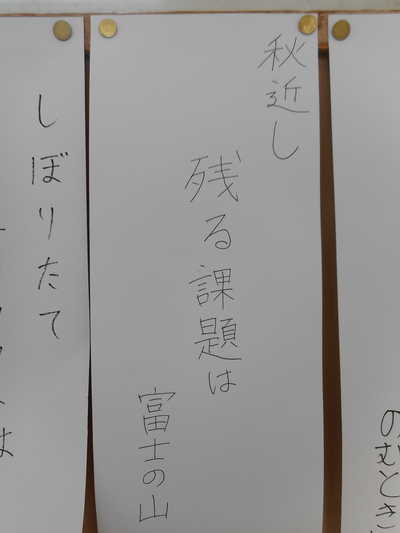 のむとき
秋近し
残る課題は
富士の山
しぼりたて